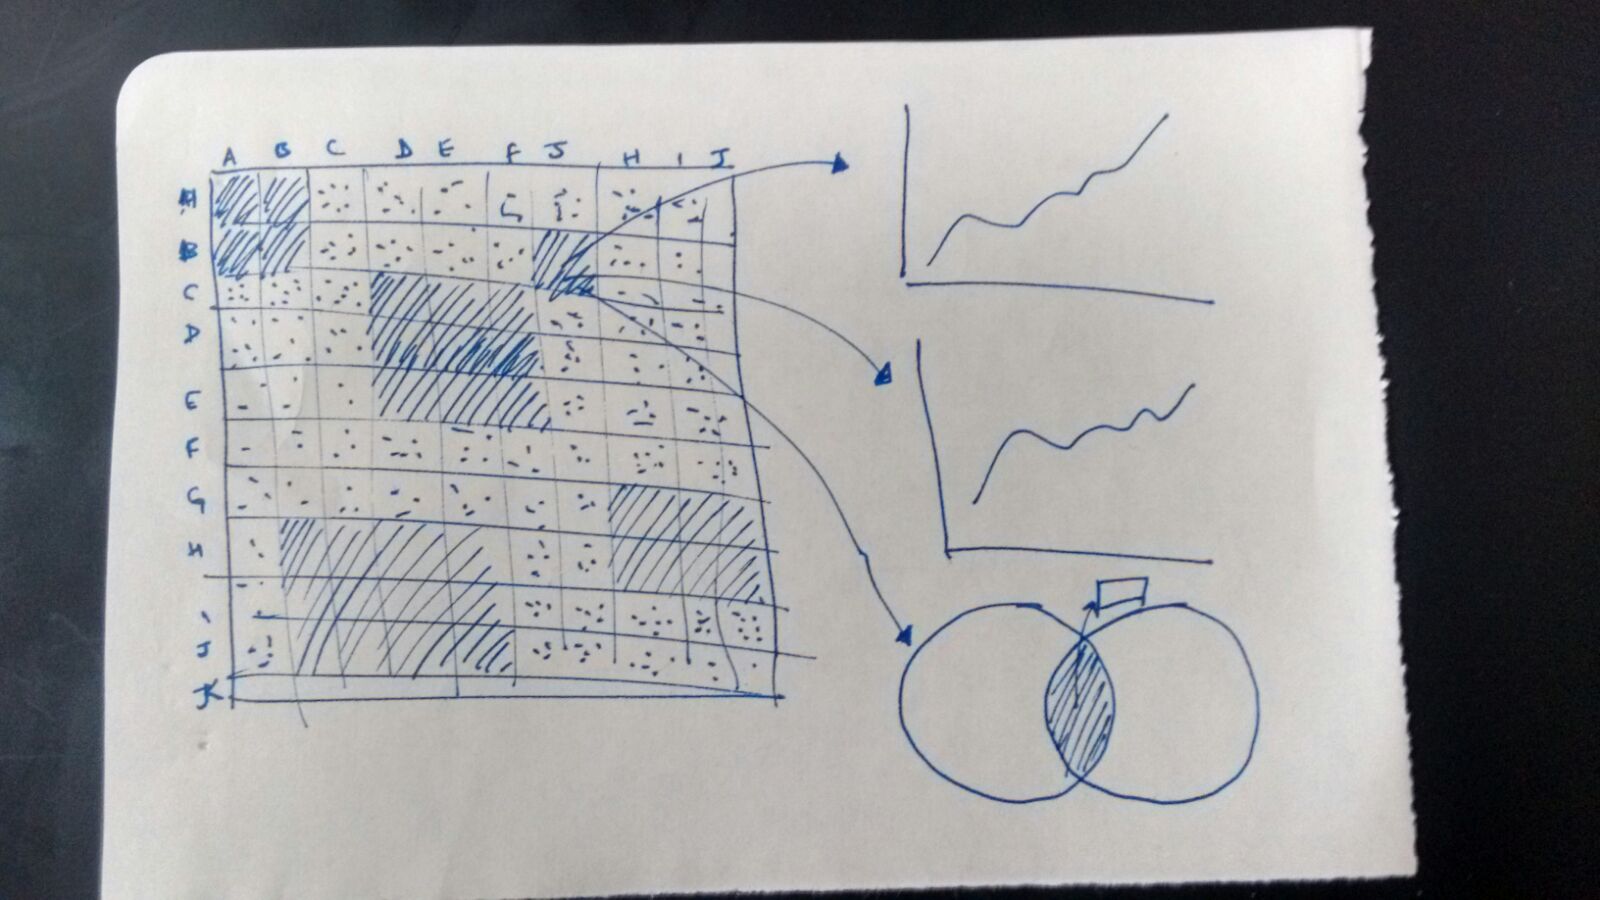 A B C D E F J H I J
A
B
C
D
E
F
G
H
I
J
K